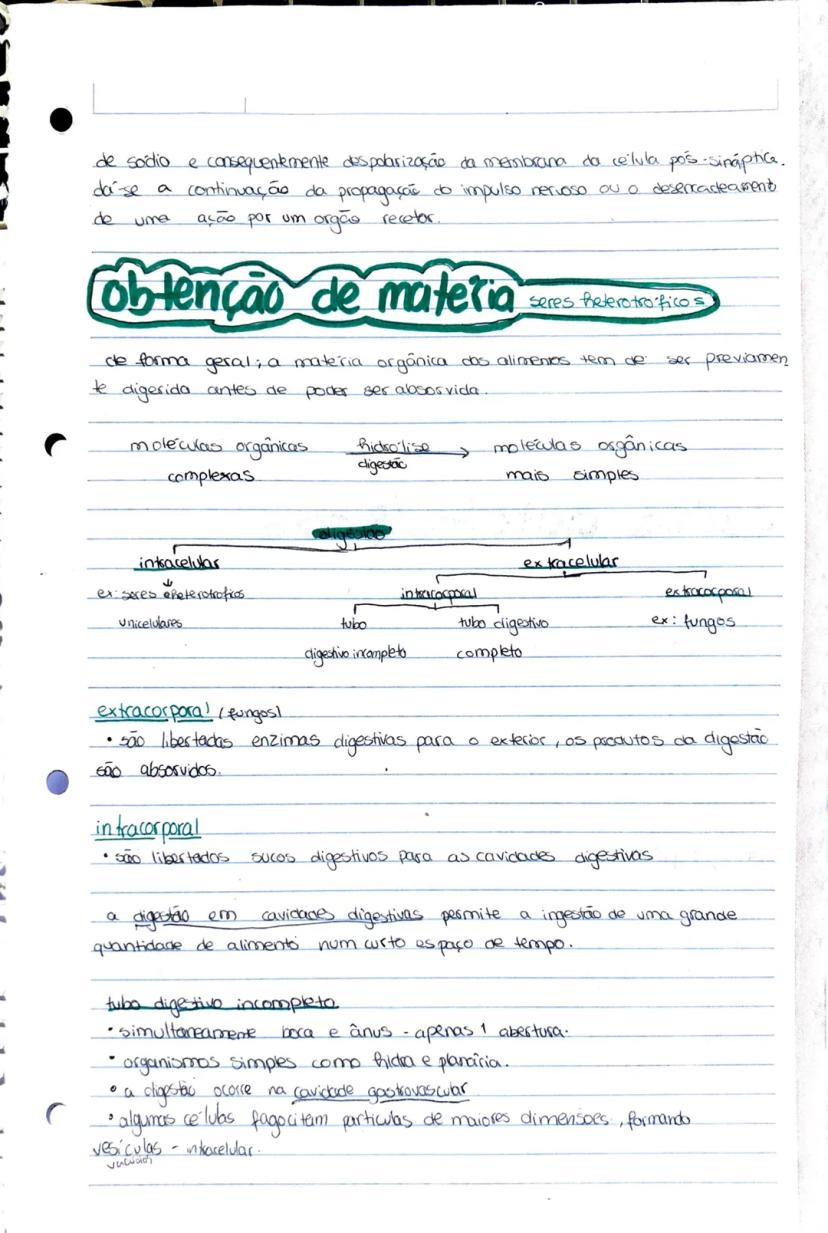 de sódio e consequentemente despolarização da membrana da célula pós-sináptica.
dá-se a continuação da propagação do impulso nervoso ou o desencadeament
de uma ação por um orgão recetor.
obtenção de matéria seres heterotróficos
de forma geral, a matéria orgânica dos alimentos tem de ser previamen
te digerida antes de poder ser absorvida.
moléculas orgânicas hidrólise moléculas orgânicas
digestão
complexas mais simples
digestão
intracelular extracelular
ex: seres heterotróficos intracorporal extracorporal
unicelulares tubo tubo digestivo ex: fungos
digestivo incompleto completo
extracorporal (fungos)
• são libertadas enzimas digestivas para o exterior, os produtos da digestão
são absorvidos.
intracorporal
• são libertados sucos digestivos para as cavidades digestivas
a digestão em cavidades digestivas permite a ingestão de uma grande
quantidade de alimento num curto espaço de tempo.
tubo digestivo incompleto
• simultaneamente boca e ânus - apenas 1 abertura.
• organismos simples como hidra e planária.
• a digestão ocorre na cavidade gastrovascular
• algumas células fagocitam partículas de maiores dimensões, formando
vesículas - intracelular.